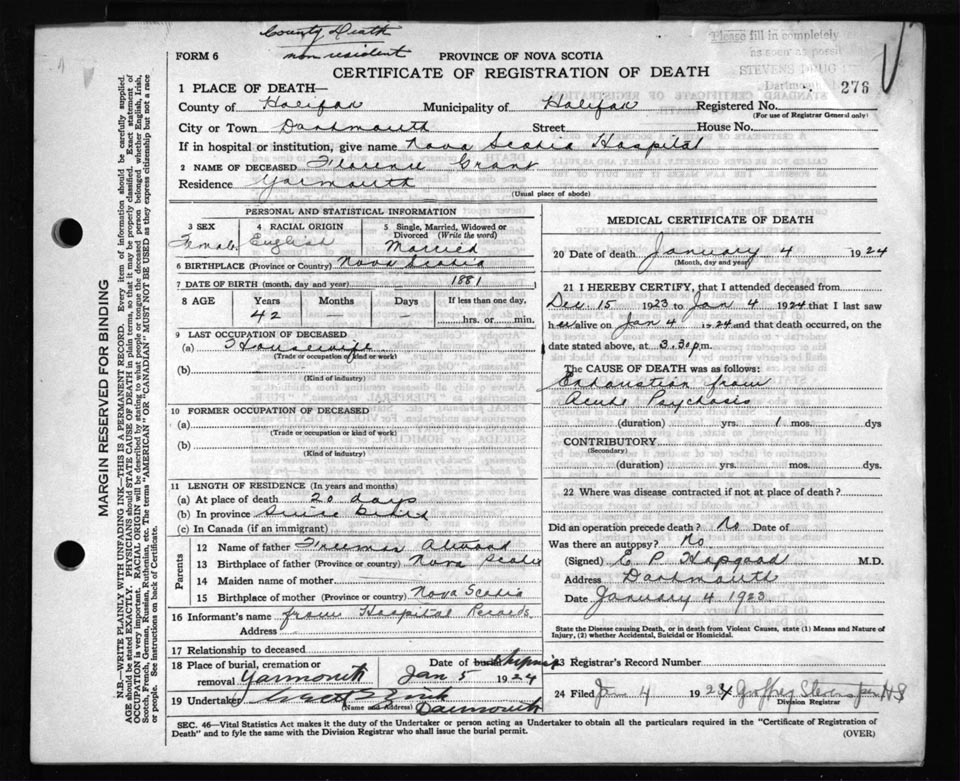 County Death
non resident
Please fill in completely
as soon as possi
STEVENS DRUG
Dartmou
FORM 6
PROVINCE OF NOVA SCOTIA
CERTIFICATE OF REGISTRATION OF DEATH
276
1 PLACE OF DEATH—
County of Halifax Municipality of Halifax Registered No.
(For use of Registrar General only)
City or Town Dartmouth Street House No.
If in hospital or institution, give name Nova Scotia Hospital
2 NAME OF DECEASED Florence Grant
Residence Yarmouth
(Usual place of abode)
PERSONAL AND STATISTICAL INFORMATION
3 SEX
Female
4 RACIAL ORIGIN
English
5 Single, Married, Widowed or
Divorced (Write the word)
Married
6 BIRTHPLACE (Province or Country) Nova Scotia
7 DATE OF BIRTH (month, day and year) 1881
8 AGE Years Months Days If less than one day,
42 — — hrs. or min.
9 LAST OCCUPATION OF DECEASED
(a) Housewife
(Trade or occupation or kind of work)
(b)
(Kind of industry)
10 FORMER OCCUPATION OF DECEASED
(a)
(Trade or occupation or kind of work)
(b)
(Kind of industry)
11 LENGTH OF RESIDENCE (In years and months)
(a) At place of death 20 days
(b) In province Since birth
(c) In Canada (if an immigrant)
Parents
12 Name of father Freeman
13 Birthplace of father (Province or country) Nova Scotia
14 Maiden name of mother —
15 Birthplace of mother (Province or country) Nova Scotia
16 Informant's name from Hospital Records.
Address
17 Relationship to deceased
18 Place of burial, cremation or
removal Yarmouth
Date of burial
Jan 5 1924
19 Undertaker
Name and Address) Dartmouth
MEDICAL CERTIFICATE OF DEATH
20 Date of death January 4 1924
(Month, day and year)
21 I HEREBY CERTIFY, that I attended deceased from
Dec. 15 1923 to Jan 4 1924 that I last saw
her alive on Jan 4 1924 and that death occurred, on the
date stated above, at 3.30 p.m.
The CAUSE OF DEATH was as follows:
Exhaustion from
Acute Psychosis
(duration) yrs. 1 mos. dys
CONTRIBUTORY
(Secondary)
(duration) yrs. mos. dys.
22 Where was disease contracted if not at place of death?
Did an operation precede death? No Date of
Was there an autopsy? No
(Signed) E. P. Hopgood M.D.
Address Dartmouth
Date January 4 1923
State the Disease causing Death, or in death from Violent Causes, state (1) Means and Nature of
Injury, (2) whether Accidental, Suicidal or Homicidal.
23 Registrar's Record Number
24 Filed Jan 4 1924 Geoffrey Stevens
Division Registrar
SEC. 46—Vital Statistics Act makes it the duty of the Undertaker or person acting as Undertaker to obtain all the particulars required in the "Certificate of Registration of
Death" and to fyle the same with the Division Registrar who shall issue the burial permit.
(OVER)
MARGIN RESERVED FOR BINDING
N.B.—WRITE PLAINLY WITH UNFADING INK—THIS IS A PERMANENT RECORD. Every item of information should be carefully supplied.
AGE should be stated EXACTLY. PHYSICIANS should STATE CAUSE OF DEATH in plain terms, so that it may be properly classified. Exact statement of
OCCUPATION is very important. RACIAL ORIGIN will be described by stating to what people or tongue the deceased person belonged whether English, Irish,
Scotch, French, German, Russian, Ruthenian, etc. The terms "AMERICAN" OR "CANADIAN" MUST NOT BE USED as they express citizenship but not a race
or people. See instructions on back of Certificate.